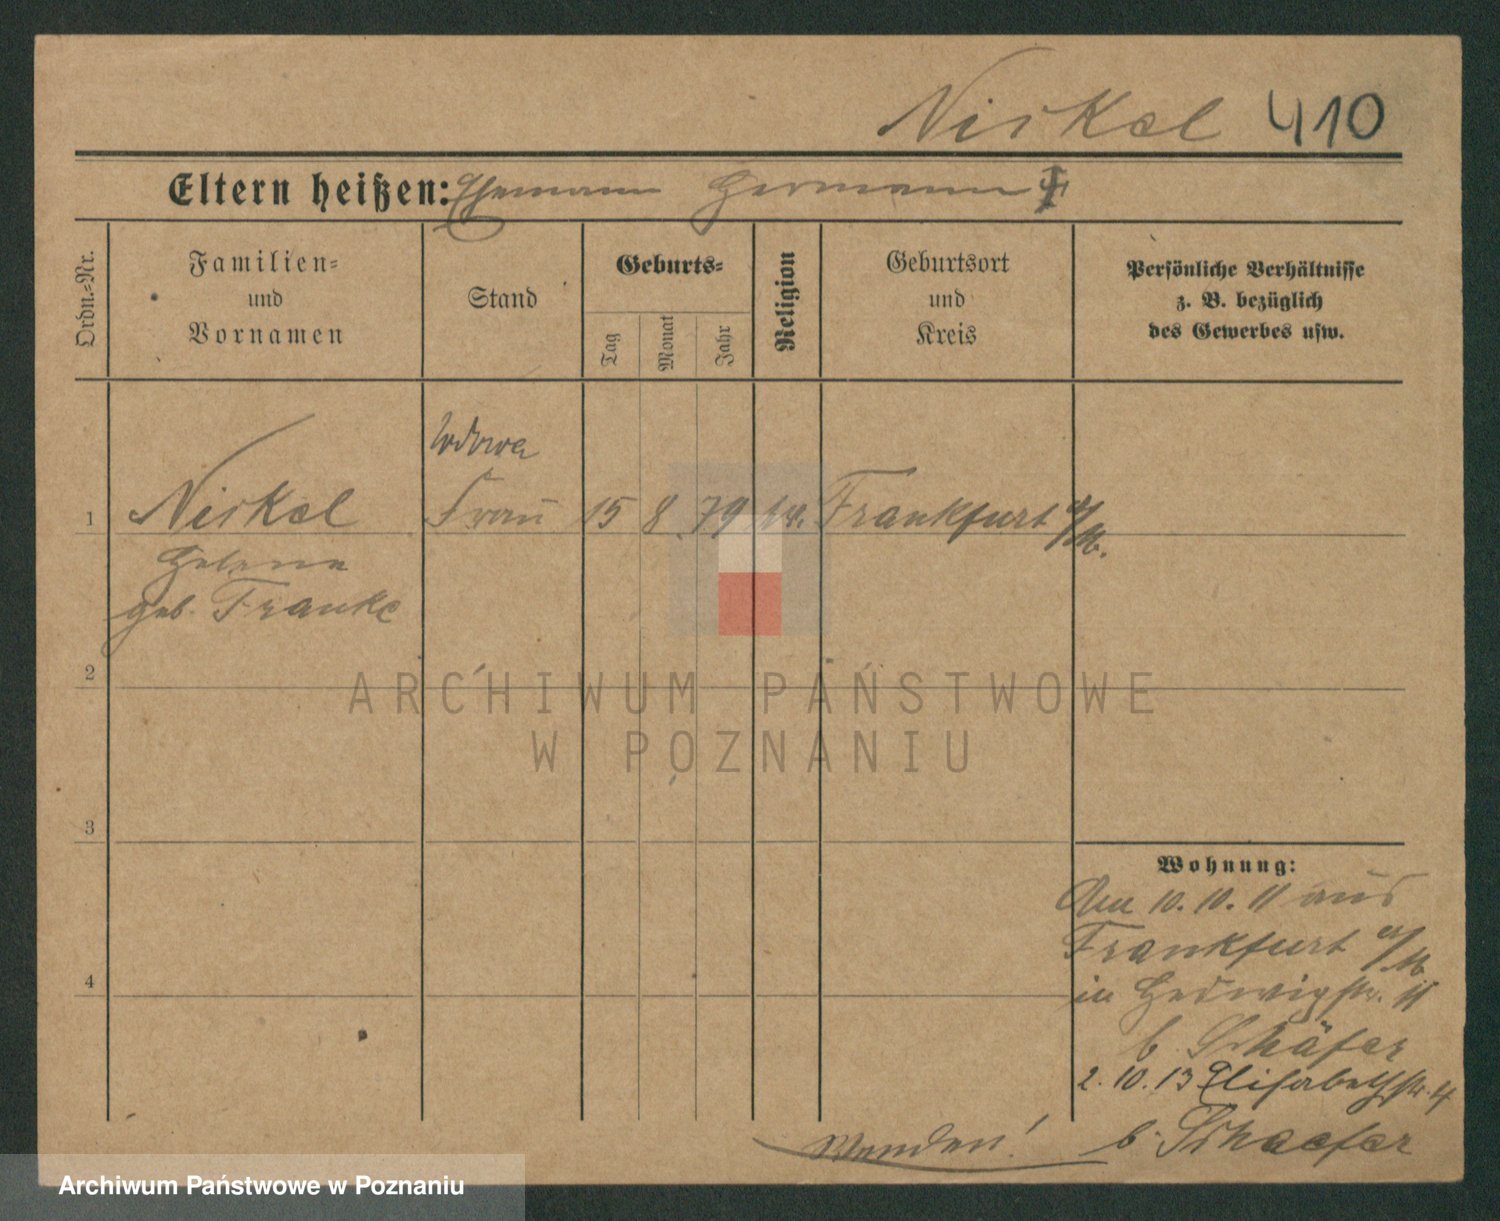 Nickel 410
Eltern heißen: Ehemann Hermann †
Ordn.-Nr.
Familien-
und
Vornamen
Stand
Geburts-
Tag
Monat
Jahr
Religion
Geburtsort
und
Kreis
Persönliche Verhältnisse
z. B. bezüglich
des Gewerbes usw.
Witwe
1 Nickel Frau 15 8 79 Frankfurt a/M.
Helene
geb. Franke
2
ARCHIWUM PAŃSTWOWE
W POZNANIU
3
Wohnung:
Am 10. 10. 11 aus
Frankfurt a/M
4
in Hedwigstr. 11
b. Schäfer
2. 10. 13 Elisabethstr. 4
b. Schaefer
Wenden!
Archiwum Państwowe w Poznaniu